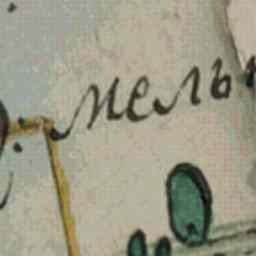 мельн